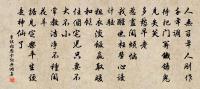 人無百年人剛作
千年調待
把門兒關鐵鑄
鬼見失笑
多愁早老
惹盡閒煩惱我
醒也枉勞心謾計
較粗衣淡飯贏取暖
和飽住
個宅兒只要不
大不小
常教潔淨不種閒
花草
據見定樂平生便
是神仙了